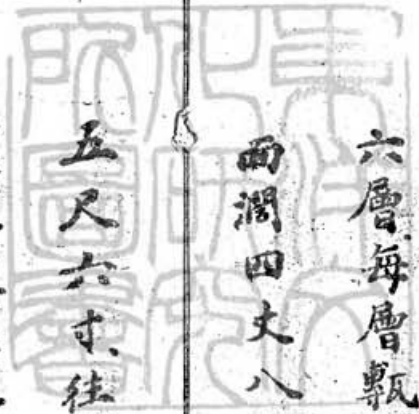 六層每層甎
面濶四丈八
五尺六寸往